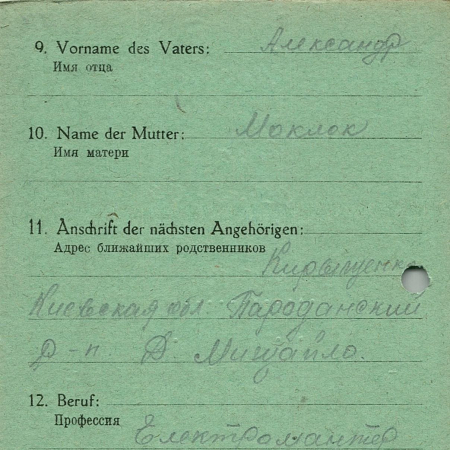 9. Vorname des Vaters: Александр
Имя отца
10. Name der Mutter: Моклок
Имя матери
11. Anschrift der nächsten Angehörigen:
Адрес ближайших родственников
Киевская обл. Пароданский
р-н Д. Михайло.
12. Beruf:
Профессия
Електромантер